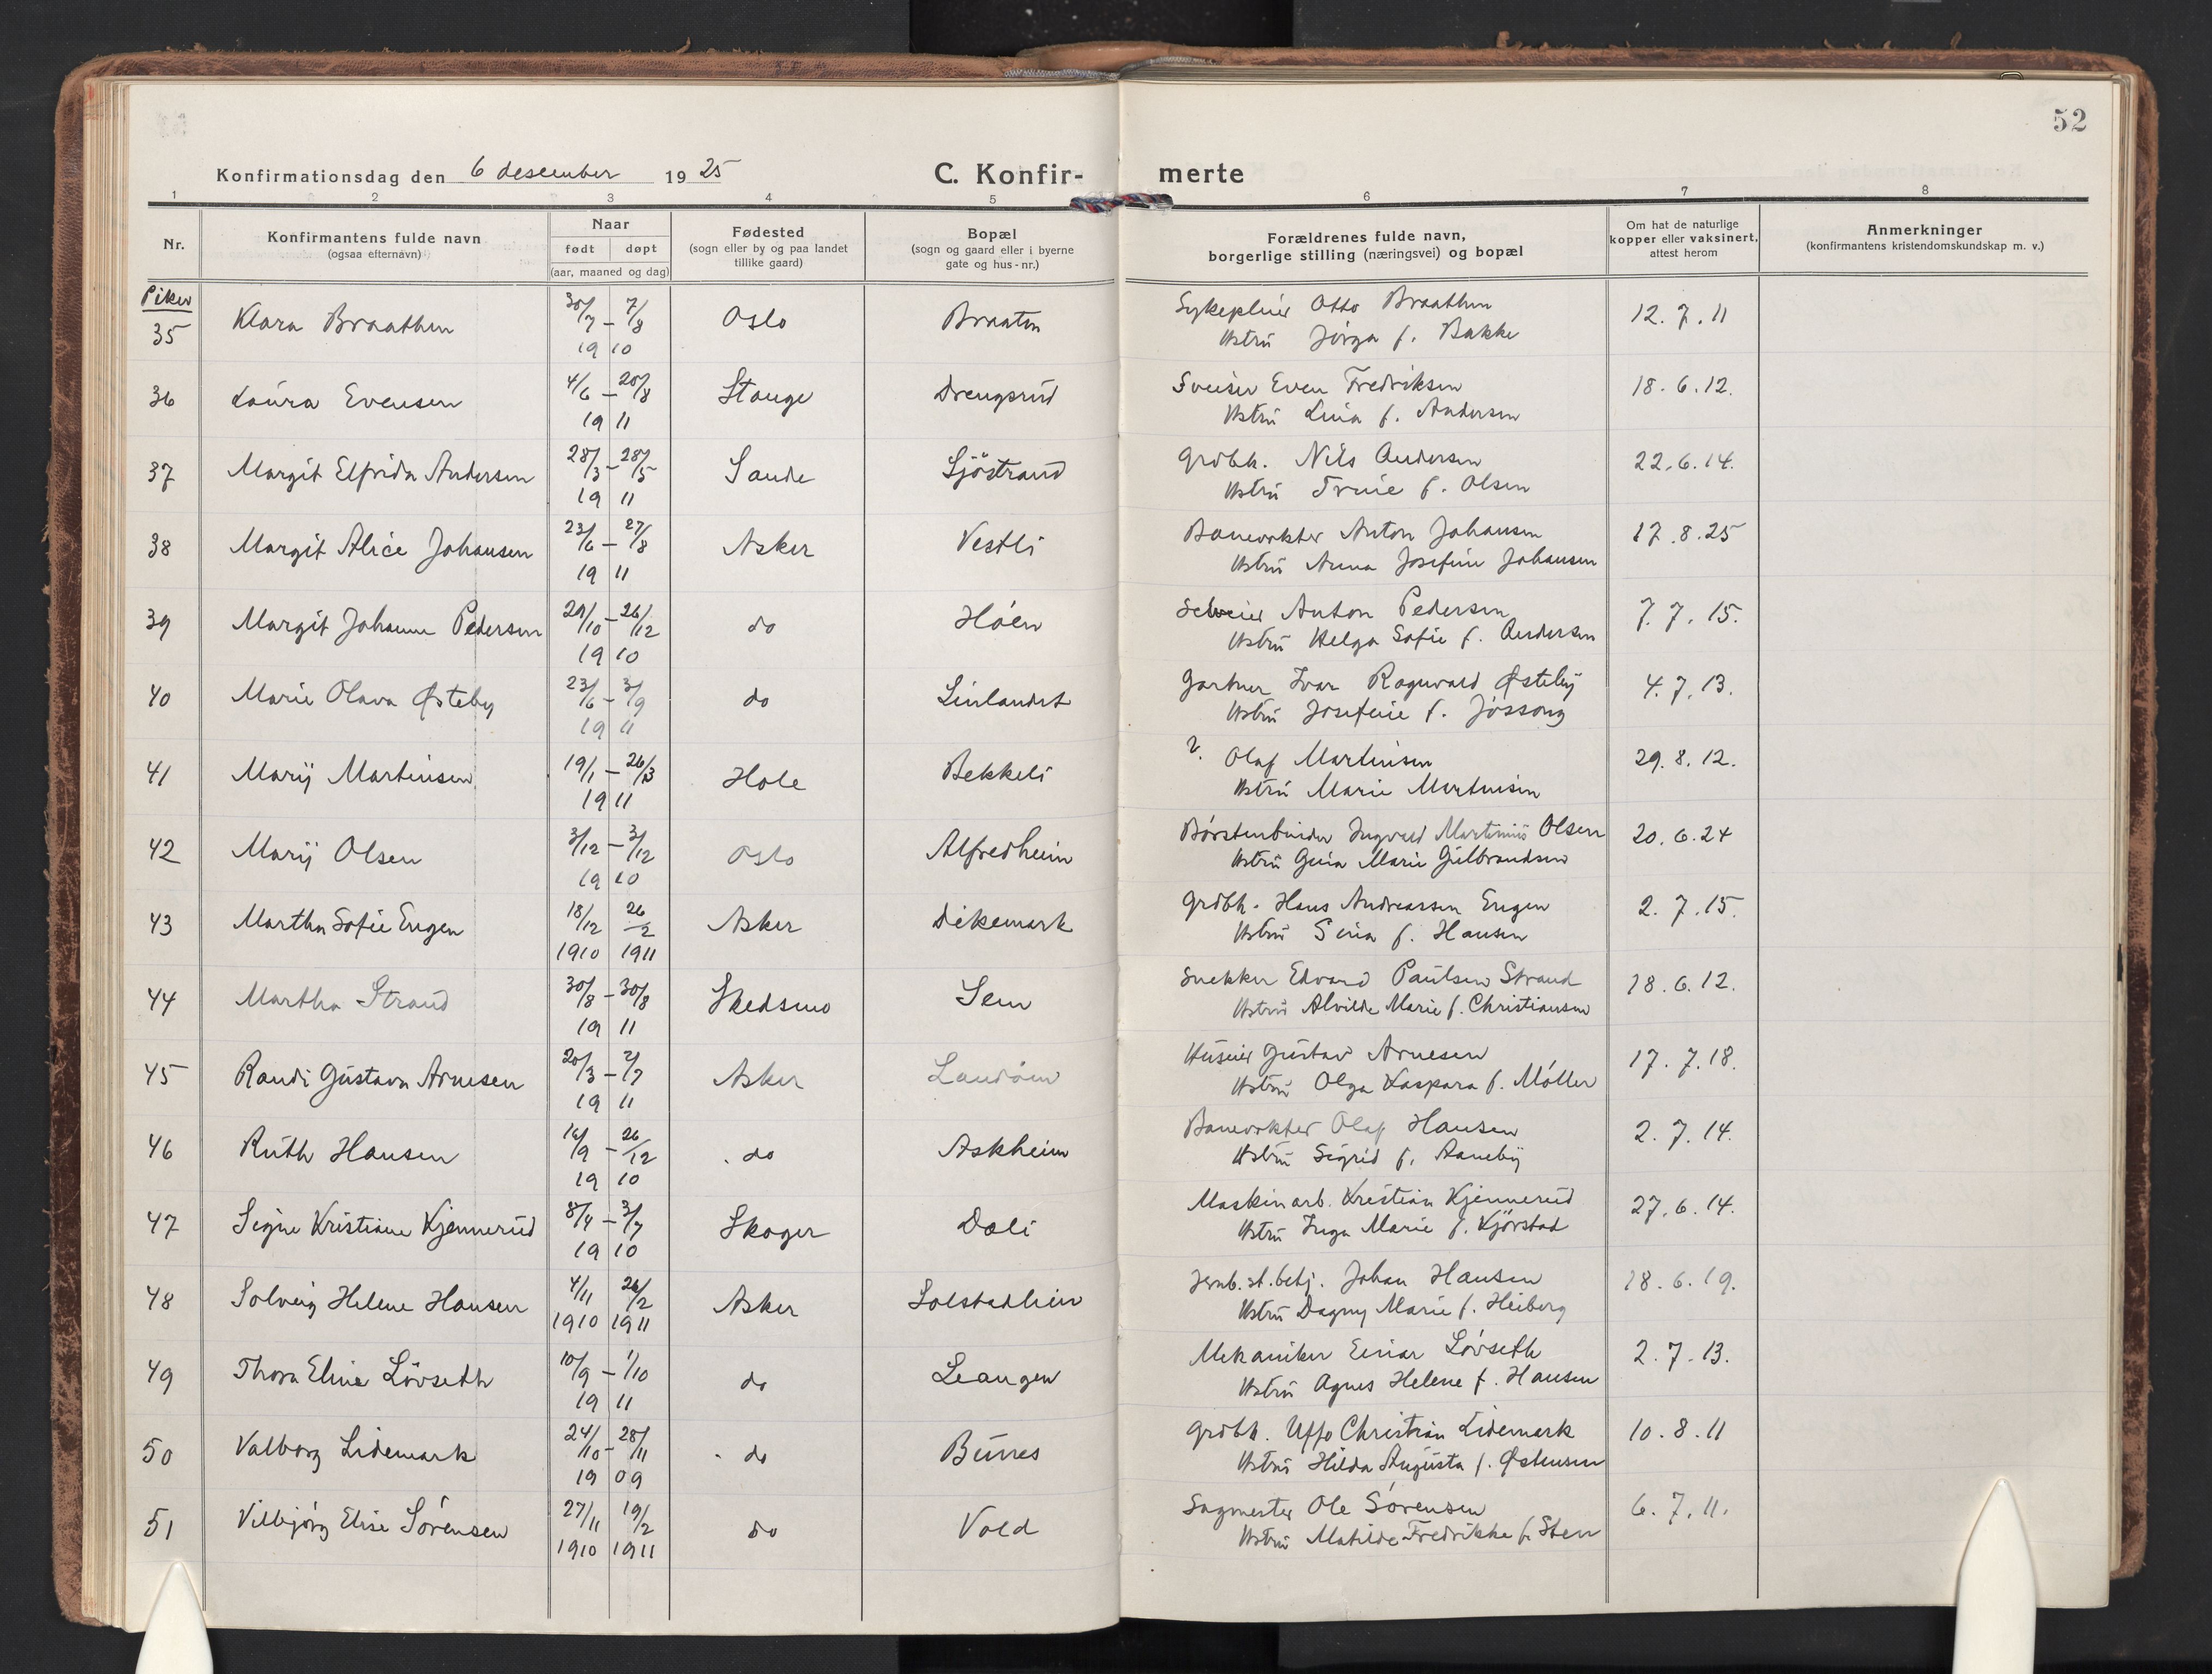 52
Konfirmationsdag den 6 desember 1925 C. Konfir- merte
1 2 3 4 5 6 7 8
Nr. Konfirmantens fulde navn (ogsaa efternavn) Naar født døpt (aar, maaned og dag) Fødested (sogn eller by og paa landet tillike gaard) Bopæl (sogn og gaard eller i byerne gate og hus-nr.) Forældrenes fulde navn, borgerlige stilling (næringsvei) og bopæl Om hat de naturlige kopper eller vaksinert, attest herom Anmerkninger (konfirmantens kristendomskundskap m. v.)
Piker
35 Klara Braathen 30/7 – 7/8 Oslo Braaten Sykepleier Otto Braathen 12.7.11
1910 Hstru Jörga f. Bakke
36 Laura Evensen 4/6 – 20/8 Stange Drengsrud Sveiser Even Fredriksen 18.6.12.
1911 Hstru Lina f. Andersen
37 Margit Elfrida Andersen 28/3 – 28/5 Sande Sjöstrand Grdbr. Nils Andersen 22.6.14.
1911 Hstru Trine f. Olsen
38 Margit Alice Johansen 23/6 – 27/8 Asker Vestli Banevokter Anton Johansen 17.8.25
1911 Hstru Anna Josefine Johansen
39 Margit Johanne Pedersen 29/10 – 26/12 do Höen Anton Pedersen 7.7.15.
1910 Hstru Helga Sofie f. Andersen
40 Marie Olava Østeby 23/6 – 3/9 do Linlandet Gartner Ivar Ragnvald Østeby 4.7.13.
1911 Hstru Josefine f. Jössong
41 Marij Martinsen 19/1 – 26/3 Hole Bekkeli v. Olaf Martinsen 29.8.12.
1911 Hstru Marie Martinsen
42 Marij Olsen 3/12 – 3/12 Oslo Alfredheim Börstenbinder Ingvald Martinius Olsen 20.6.24
1910 Hstru Gina Marie Gulbrandsen
43 Martha Sofie Engen 18/12 26/2 Asker Dikemark Grdbr. Hans Andreassen Engen 2.7.15.
1910 1911 Hstru Sina f. Hansen
44 Martha Strand 30/8 – 30/8 Skedsmo Sem Snekker Edvard Paulsen Strand 18.6.12.
1911 Hstru Alvilde Marie f. Christiansen
45 Randi Gustava Arnesen 20/3 – 2/7 Asker Landöen Huseier Gustav Arnesen 17.7.18.
1911 Hstru Olga Kaspara f. Möller
46 Ruth Hansen 16/9 – 26/12 do Askheim Banevokter Olaf Hansen 2.7.14.
1910 Hstru Sigrid f. Aanebij
47 Signe Kristiane Kjennerud 8/4 – 3/7 Skoger Dali Maskinarb. Kristian Kjennerud 27.6.14.
1910 Hstru Inga Marie f. Kjörstad
48 Solveig Helene Hansen 4/11 26/2 Asker Solstadlien Jernb.st.betj. Johan Hansen 18.6.19.
1910 1911 Hstru Dagny Marie f. Heiberg
49 Thora Eline Lövseth 10/9 – 1/10 do Leangen Mekaniker Einar Lövseth 2.7.13.
1911 Hstru Agnes Helene f. Hansen
50 Valborg Lidemark 24/10 – 28/11 do Bunes Grdbr. Uffo Christian Lidemark 10.8.11
1909 Hstru Hilda Augusta f. Østensen
51 Vilbjörg Elise Sörensen 27/11 19/2 do Vold Sagmester Ole Sörensen 6.7.11.
1910 1911 Hstru Matilde Fredrikke f. Sten